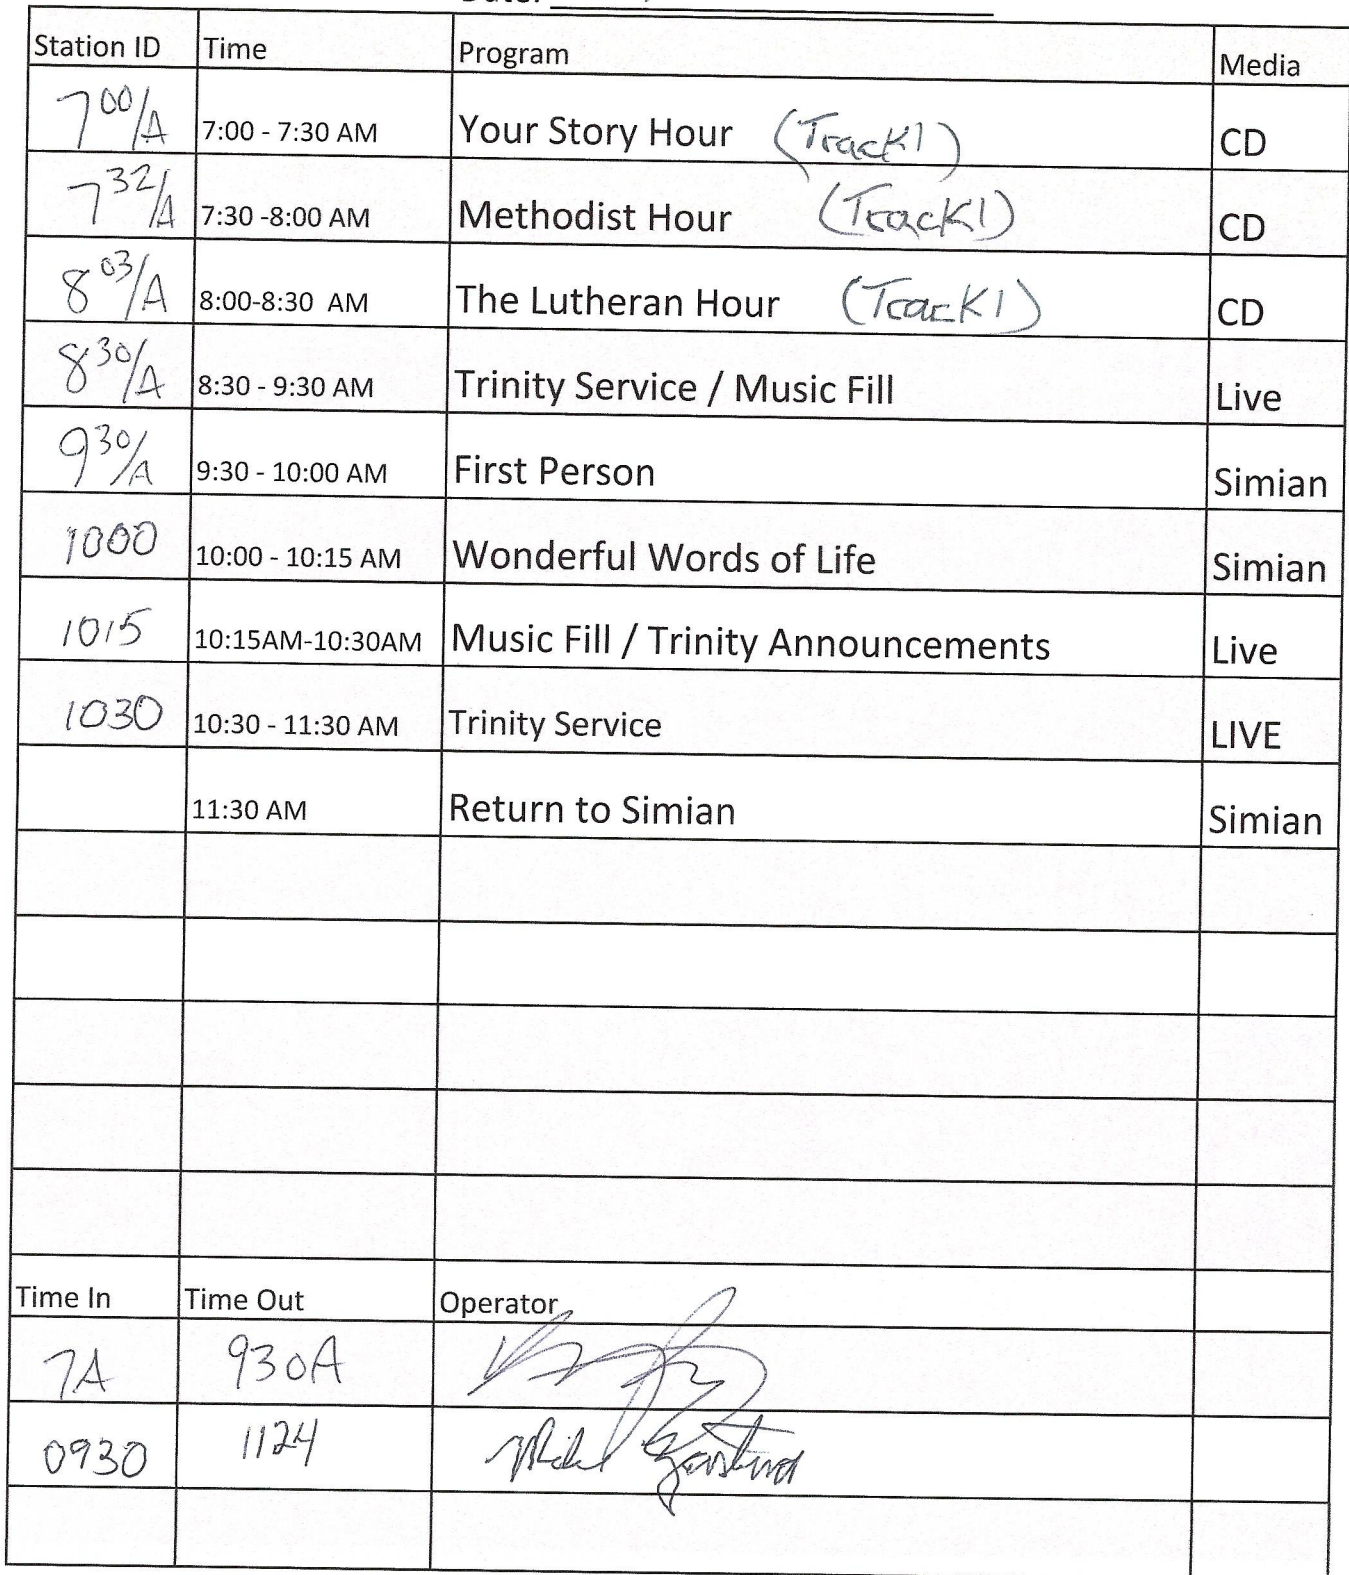 Date:
Station ID Time Program Media
7 00/A 7:00 - 7:30 AM Your Story Hour (Track1) CD
7 32/A 7:30 -8:00 AM Methodist Hour (Track1) CD
8 03/A 8:00-8:30 AM The Lutheran Hour (Track1) CD
8 30/A 8:30 - 9:30 AM Trinity Service / Music Fill Live
9 30/A 9:30 - 10:00 AM First Person Simian
1000 10:00 - 10:15 AM Wonderful Words of Life Simian
1015 10:15AM-10:30AM Music Fill / Trinity Announcements Live
1030 10:30 - 11:30 AM Trinity Service LIVE
11:30 AM Return to Simian Simian
Time In Time Out Operator
7A 930A
0930 1124